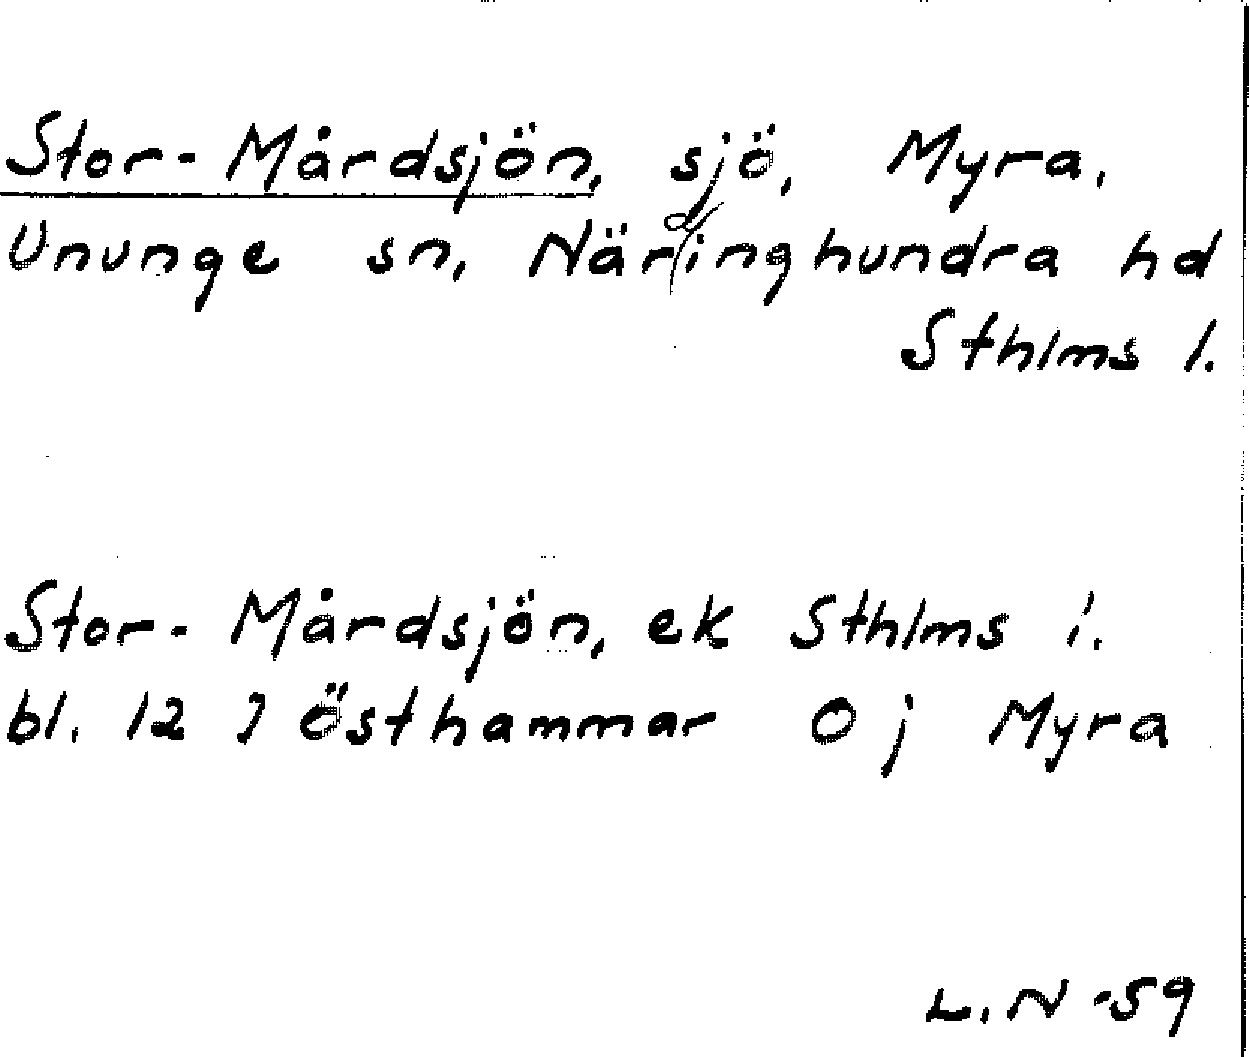 Stor-Mårdsjön, sjö, Myra,
Ununge sn, Närdinghundra hd
Sthlms l.
Stor-Mårdsjön, ek Sthlms l.
bl. 12 I Östhammar 0 j Myra
L.N -59